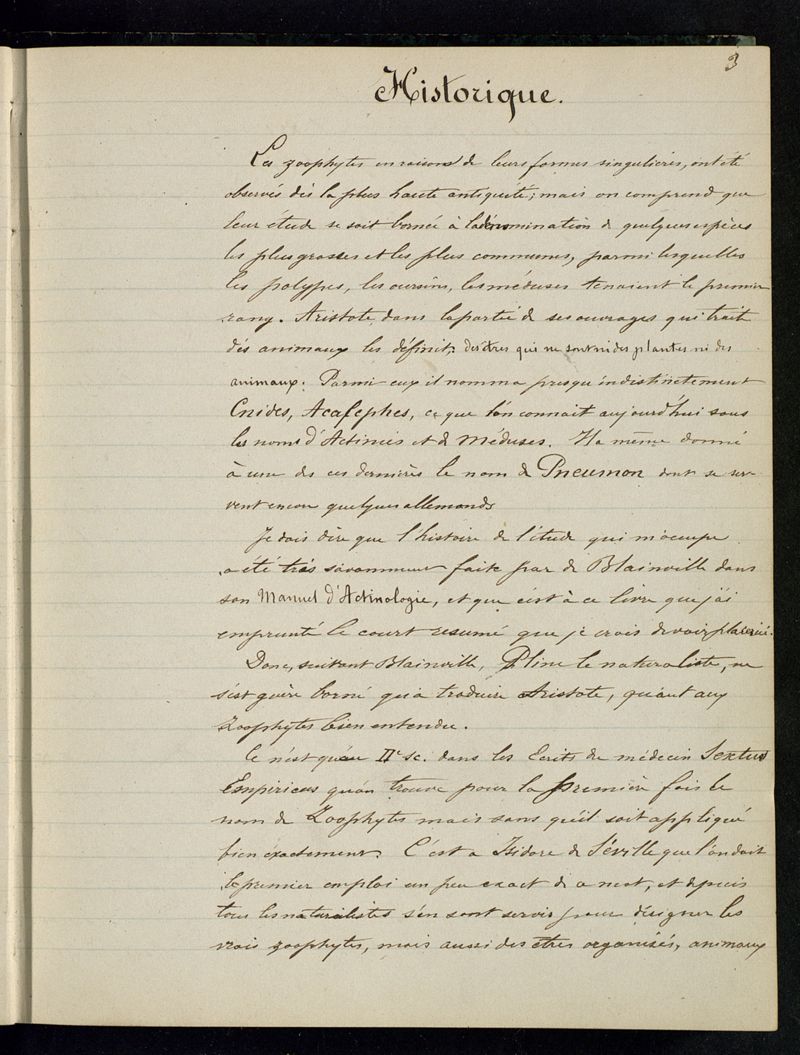 3
Historique.
Les zoophytes en raisons de leurs formes singulières, ont été
observés dès la plus haute antiquité; mais on comprend que
leur étude se soit bornée à la dénomination de quelques espèces
les plus grosses et les plus communes, parmi lesquelles
les polypes, les oursins, les méduses tenaient le premier
rang. Aristote, dans la partie de ses ouvrages qui trait
dès animaux les définit: des êtres qui ne sont ni des plantes ni des
animaux. Parmi eux il nomma presqu'indistinctement
Cnides, Acalephes, ce que l'on connait aujourd'hui sous
les noms d'Actinies et de Méduses. Il a même donné
à une des ces dernières le nom de Pneumon dont se ser-
vent encore quelques allemands
Je dois dire que l'histoire de l'étude qui m'occupe
a été très savamment faite par de Blainville dans
son Manuel d'Actinologie, et que c'est à ce livre que j'ai
emprunté le court resumé que je crois devoir placer ici.
Donc, suivant Blainville, Pline le naturaliste, ne
s'est guère borné qu'a traduire Aristote, quant aux
Zoophytes bien entendu.
Ce n'est qu'au IIe sc. dans les Ecrits du médecin Sextus
Empiricus qu'on trouve pour la première fois le
nom de Zoophytes mais sans qu'il soit appliqué
bien éxactement. C'est a Isidore de Séville que l'on doit
le premier emploi un peu exact de ce mot, et depuis
tous les naturalistes s'en sont servis pour désigner les
vrais zoophytes, mais aussi des êtres organisés, animaux